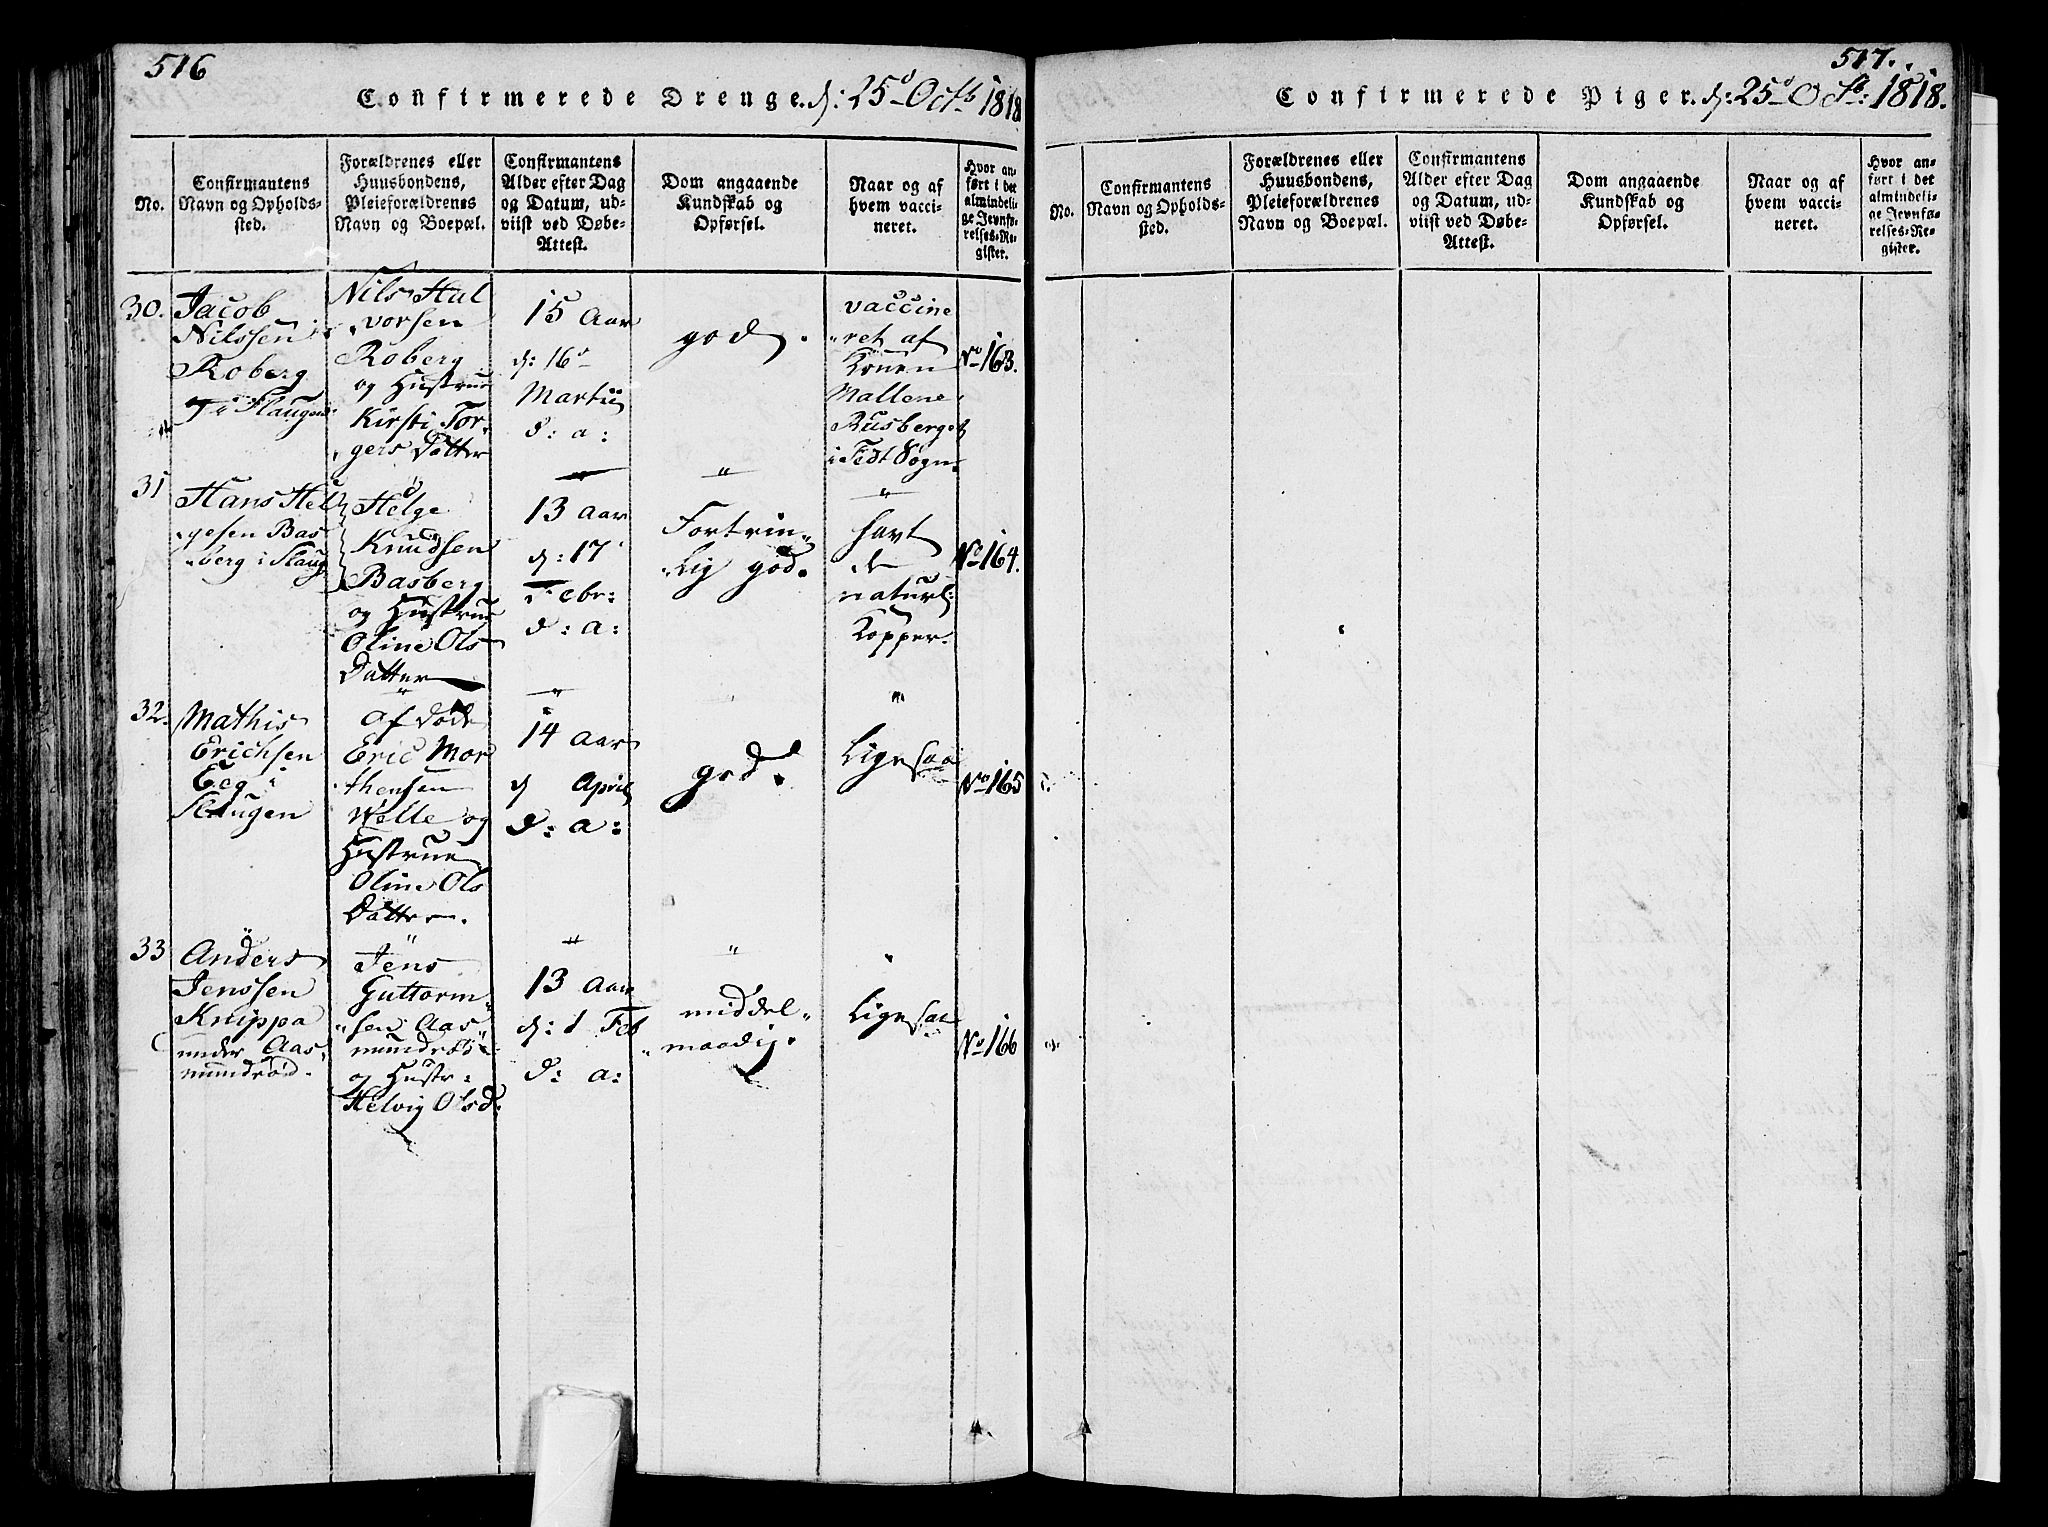 516
Confirmerede Drenge. d: 25d Octb 1818
No.
Confirmantens
Navn og Opholds-
sted.
Forældrenes eller
Huusbondens,
Pleieforældrenes
Navn og Boepæl.
Confirmantens
Alder efter Dag
og Datum, ud-
viist ved Døbe-
Attest.
Dom angaaende
Kundskab og
Opførsel.
Naar og af
hvem vacci-
neret.
Hvor an-
ført i det
almindeli-
ge Jevnfø-
relses-Re-
gister.
30.
Jacob
Nilssen
Roberg
i Slaugen
Nils Hal
vorsen
Roberg
og Hustrue
Kirsti Tor-
gers Datter
15 Aar
d: 16d
Martii
d: a:
god.
vaccine
ret af
Konen
Mallene
Rusberget
i Tedt Sogn
No 163.
31
Hans Hel
gesen Bas
berg i Slaug
Helge
Knudsen
Basberg
og Hustrue
Oline Ols
Datter
13 Aar
d: 17
Febr:
d: a:
Fortrin-
lig god.
havt
de
naturl:
Kopper.
No 164.
32.
Mathis
Erichsen
Eeg i
Slaugen
af døde
Eric Mor
thensen
Welle og
Hustrue
Oline Ols
Datter.
14 Aar
d April
d: a:
god.
Ligesaa
No 165
33
Anders
Jenssen
Knippa
under Aas
mundrød.
Jens
Guttorm-
sen Aas
mundrød
og Hustr:
Helvig Olsd:
13 Aar
d: 1 Feb
d: a:
middel-
maadig.
Ligesaa
No 166
517.
Confirmerede Piger. d: 25d Octb: 1818.
No.
Confirmantens
Navn og Opholds-
sted.
Forældrenes eller
Huusbondens,
Pleieforældrenes
Navn og Boepæl.
Confirmantens
Alder efter Dag
og Datum, ud-
viist ved Døbe-
Attest.
Dom angaaende
Kundskab og
Opførsel.
Naar og af
hvem vacci-
neret.
Hvor an-
ført i det
almindeli-
ge Jevnfø-
relses-Re-
gister.